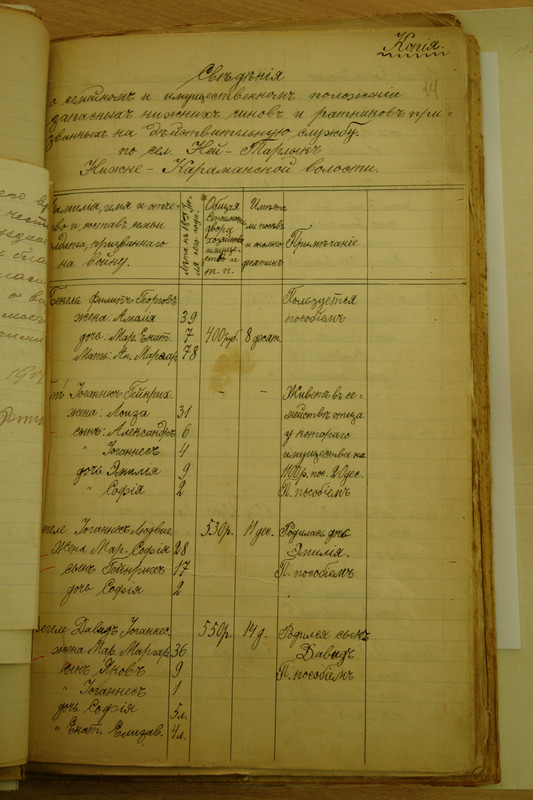 Копія.
44
Свѣдѣнія
о семейномъ и имущественномъ положеніи
запасныхъ нижнихъ чиновъ и ратниковъ при-
званныхъ на дѣйствительную службу
по сел. Ней-Тарлыкъ
Нижне-Караманской волости.
Фамилія, имя и отче-
во и, составъ семьи
солдата, призваннаго
на войну.
Общая
стоимость
двора
хозяйства
имуще-
ства и
т. п.
десятинъ
Примѣчаніе
Филиппъ Георговъ
Пользуется
жена: Амалія 39
пособіемъ
дочь: Мар. Екат. 7 400 руб. 8 десят.
Мать: Ан. Маргар. 78
Іоганнесъ Гейнрих. - - Живетъ въ се-
жена: Лоиза 31 мействѣ отца
сынъ: Александръ 6 у котораго
" Іоганнесъ 4 имущества на
дочь Эмилія 9 1100 р. пос. 20 дес.
" Софія 2 П. пособіемъ
Іоганнесъ Людвиг. 530 р. 11 дес. Родилась дочь
жена Мар. Софія 28 Эмилія.
сынъ Гейнрихъ 17 П. пособіемъ
дочь Софія 2
Давидъ Іоганнес. 550 р. 14 д. Родился сынъ
жена Мар. Маргар. 36 Давидъ
сынъ Яковъ 9 П. пособіемъ
" Іоганнесъ 1
дочь Софія 5 л.
" Екат. Елизав. 4 л.